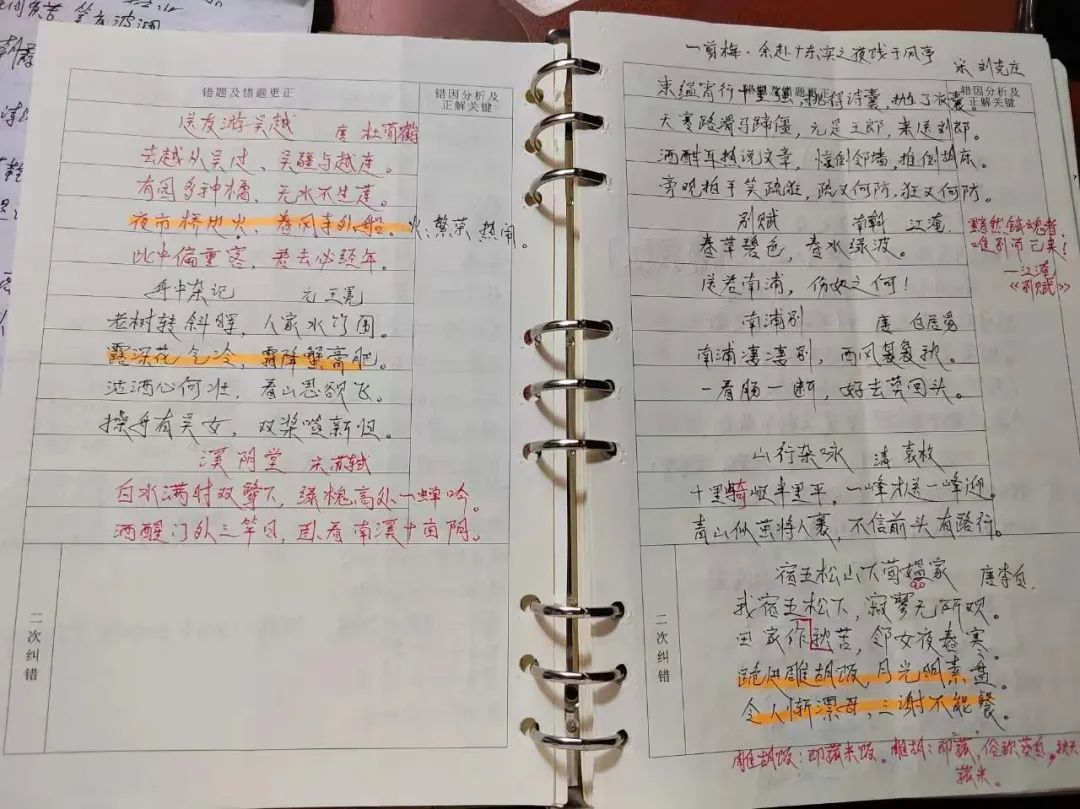 错题及错题更正
错因分析及
正解关键
送友游吴越 唐 杜荀鹤
去越从吴过、吴疆与越连。
有园多种橘、无水不生莲。
夜市桥边火、春风寺外船。
火:繁荣、热闹。
此中偏重客、君去必经年。
舟中杂记 元 王冕
老树转斜晖,人家水竹围。
露深花气冷,霜降蟹膏肥。
沽酒心何壮,看山思欲飞。
操舟有吴女,双桨唱新归。
溪阴堂 宋 苏轼
白水满时双鹭下,绿槐高处一蝉吟。
酒醒门外三竿日,卧看南溪十亩阴。
二次纠错
一剪梅·余赴广东实之夜饯于风亭
宋 刘克庄
错因分析及
正解关键
束缊宵行十里强,挑得诗囊,抛了衣囊。
天寒路滑马蹄僵,元是王郎,来送刘郎。
酒酣耳热说文章,惊倒邻墙,推倒胡床。
旁观拍手笑疏狂,疏又何防,狂又何防。
别赋 南朝 江淹
春草碧色,春水绿波。
送君南浦,伤如之何!
黯然销魂者
唯别而已矣!
—江淹
《别赋》
南浦别 唐 白居易
南浦凄凄别,西风袅袅秋。
一看肠一断,好去莫回头。
山行杂咏 清 袁枚
十里崎岖半里平,一峰才送一峰迎。
青山似茧将人裹,不信前头有路行。
宿五松山下荀媪家 唐 李白
我宿五松下,寂寥无所欢。
田家作秋苦,邻女夜舂寒。
跪进雕胡饭,月光明素盘。
令人惭漂母,三谢不能餐。
二次纠错
雕胡饭:即菰米饭。雕胡:即菰,俗称茭白,秋天
菰米。